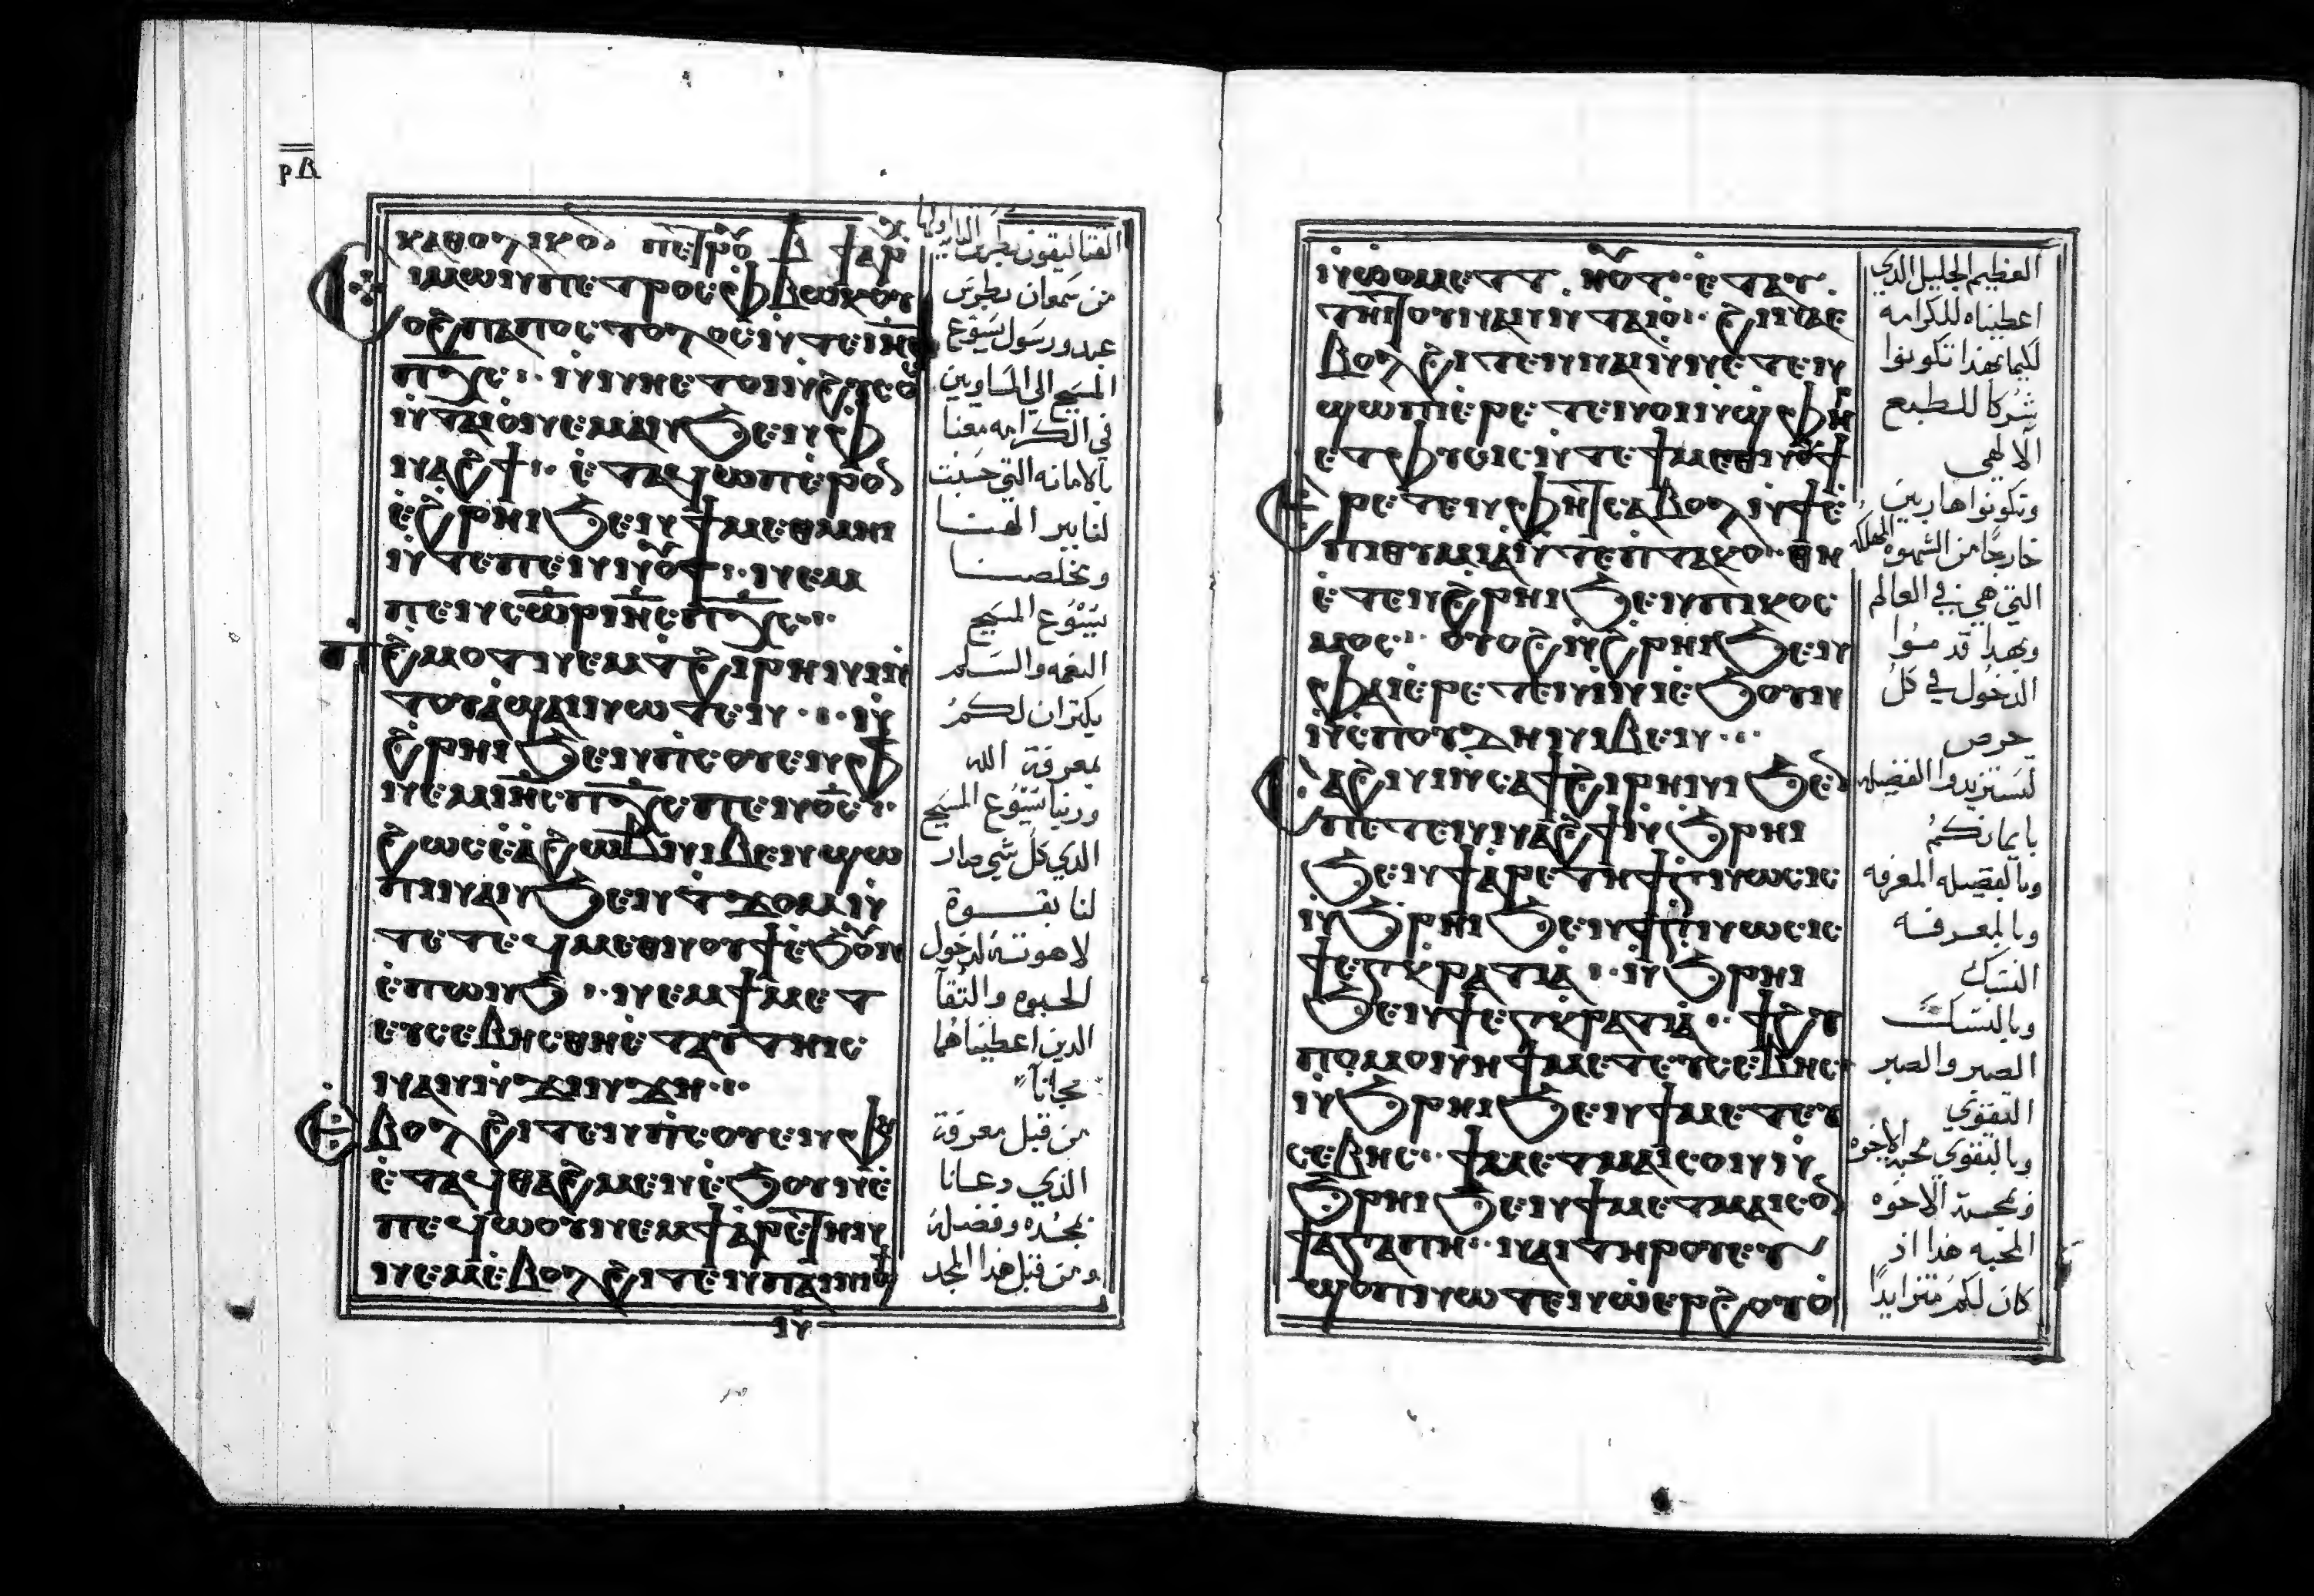 ⲣⲃ
ⲕⲁⲑⲟⲗⲓⲕⲟⲛ ⲡⲉⲧⲣⲟ ⲃ ϯ ⲁⲣ
ⲥⲓⲙⲱⲛ ⲡⲉⲧⲣⲟⲥ ⲫⲃⲱⲕ ⲟⲩ
ⲟϩ ⲡⲁⲡⲟⲥⲧⲟⲗⲟⲥ ⲛⲧⲉ ⲓⲏⲥ
ⲡⲭⲥ ⲛⲛⲏ ⲉⲧⲟⲓ ⲛϩⲩⲥⲟ
ⲛⲧⲁⲓⲟ ⲛⲉⲙⲁⲛ ϧⲉⲛ ⲫ
ⲛⲁϩϯ ⲉⲧⲁϥϣⲱⲡⲉ ⲣⲟⲛ
ⲉϩⲣⲏⲓ ϧⲉⲛ ϯⲙⲉⲑⲙⲏⲓ
ⲛⲧⲉ ⲡⲉⲛⲛⲟⲩϯ ⲛⲉⲙ
ⲡⲉⲛⲥⲱⲣ ⲓⲏⲥ ⲡⲭⲥ
ⲡϩⲙⲟⲧ ⲛⲉⲙ ⲧϩⲓⲣⲏⲛⲏ ⲛ
ⲧⲟⲩⲁϣⲁⲓ ⲛⲱⲧⲉⲛ ⲛ
ϩⲣⲏⲓ ϧⲉⲛ ⲡⲥⲟⲩⲉⲛ ⲫϯ
ⲛⲉⲙ ⲓⲏⲥ ⲡⲭⲥ ⲡⲉⲛⲟⲥ
ϩⲱⲥ ⲉⲁ ϩⲱⲃ ⲛⲓⲃⲉⲛ ϣⲱ
ⲡⲓ ⲛⲁⲛ ϧⲉⲛ ⲧϫⲟⲙ ⲛ
ⲧⲉ ⲧⲉϥⲙⲉⲑⲛⲟⲩϯ ⲉϧⲟⲩⲛ
ⲉⲡⲱⲛϧ ⲛⲉⲙ ϯⲙⲉⲧ
ⲉⲩⲥⲉⲃⲏⲥ ⲑⲏ ⲉⲧⲁⲩⲧⲏⲓⲥ
ⲛⲁⲛ ⲛϫⲓⲛϫⲏ
ⲉⲃⲟⲗ ϩⲓⲧⲉⲛ ⲡⲥⲟⲩⲉⲛ ⲫⲏ
ⲉⲧⲁϥⲑⲁϩⲙⲉⲛ ⲉϧⲟⲩⲛ ⲉ
ⲡⲉϥⲱⲟⲩ ⲛⲉⲙ ϯⲁⲣⲉⲧⲏ
ⲛⲉⲙ ⲉⲃⲟⲗ ϩⲓⲧⲉⲛ ⲡⲁⲓⲛⲓϣϯ
القتاليقون بطرس الثانيه اولها
من سمعان بطرس
عبد ورسول يسوع
المسيح الي المساويين
في الكرامه معنا
بالامانه التي حسبت
لنا ببر الهنا
ومخلصنا
يسوع المسيح
النعمه والسلم
يكثران لكم
بمعرفة الله
وربنا يسوع المسيح
الذي كل شي صار
لنا بقوة
لاهوته لدخول
الحيوه والتقا
الدين اعطيناهما
مجانا
من قبل معرفة
الذي دعانا
بمجده وفضله
ومن قبل هذا المجد
ⲛⲱⲟⲩ ⲉⲧⲧ ⲛⲟⲧ ⲉⲧⲁⲩ
ⲧⲏⲓⲧⲟⲩ ⲛⲁⲛ ⲛⲧⲁⲓⲟ ϩⲓⲛⲁ ⲉ
ⲃⲟⲗ ϩⲓⲧⲉⲛ ⲛⲁⲓ ⲛⲧⲉⲧⲉⲛ
ϣⲱⲡⲓ ⲉⲣⲉⲧⲉⲛⲟⲓ ⲛϣⲫⲏⲣ
ⲉⲧⲫⲩⲥⲓⲥ ⲛⲧⲉ ϯⲙⲉⲑⲛⲟⲩϯ
ⲉⲣⲉⲧⲉⲛⲫⲏⲧ ⲥⲁⲃⲟⲗ ⲛϯⲉ
ⲡⲓⲑⲩⲙⲓⲁ ⲛⲧⲉ ⲡⲧⲁⲕⲟ ⲑⲏ
ⲉⲧⲉⲛϩⲣⲏⲓ ϧⲉⲛ ⲡⲓⲕⲟⲥ
ⲙⲟⲥ ⲟⲩⲟϩ ⲛϩⲣⲏⲓ ϧⲉⲛ
ⲫⲁⲓ ⲉⲣⲉⲧⲉⲛⲓⲛⲓ ⲉϧⲟⲩⲛ
ⲛⲥⲡⲟⲩⲇⲏ ⲛⲓⲃⲉⲛ
ⲥⲁϩⲛⲓ ⲛⲥⲁ ϯϩⲓⲣⲏⲛⲏ ϧⲉⲛ
ⲡⲉⲧⲉⲛⲛⲁϩϯ ⲛϧⲣⲏⲓ
ϧⲉⲛ ϯⲁⲣⲉⲧⲏ ϯⲅⲛⲱⲥⲓⲥ
ⲛϧⲣⲏⲓ ϧⲉⲛ ϯⲅⲛⲱⲥⲓⲥ
ϯⲉⲅⲕⲣⲁⲧⲓⲁ ⲛϧⲣⲏⲓ
ϧⲉⲛ ϯⲉⲅⲕⲣⲁⲧⲓⲁ ϯϩⲩ
ⲡⲟⲙⲟⲛⲏ ϯⲙⲉⲧⲉⲩⲥⲉⲃⲏⲥ
ⲛϧⲣⲏⲓ ϧⲉⲛ ϯⲙⲉⲧⲉⲩ
ⲥⲉⲃⲏⲥ ϯⲙⲉⲧⲙⲁⲓⲥⲟⲛ ⲛ
ϧⲣⲏⲓ ϧⲉⲛ ϯⲙⲉⲧⲙⲁⲓⲥⲟⲛ
ϯⲁⲅⲁⲡⲏ ⲛⲁⲓ ⲧⲏⲣⲟⲩ ⲉⲩ
ϣⲟⲡ ⲛⲱⲧⲉⲛ ⲱⲉⲣϩⲟⲩⲟ
العظيم الجليل الدي
اعطيناه للكرامه
لكيما بهذا تكونوا
شركا للطبع
الالهي
وتكونوا هاربين
خارجا من الشهوه المهلكه
التي هي في العالم
وبهذا قدموا
الدخول في كل
حرص
لتستزيدوا الفضيله
بايمانكم
وبالفضيله المعرفه
وبالمعرفه
النسك
وبالنسك
الصبر والصبر
التقوي
وبالتقوي محبة الاخوه
وبمحبة الاخوه
المحبه هذا اذ
كان لكم متزايدا